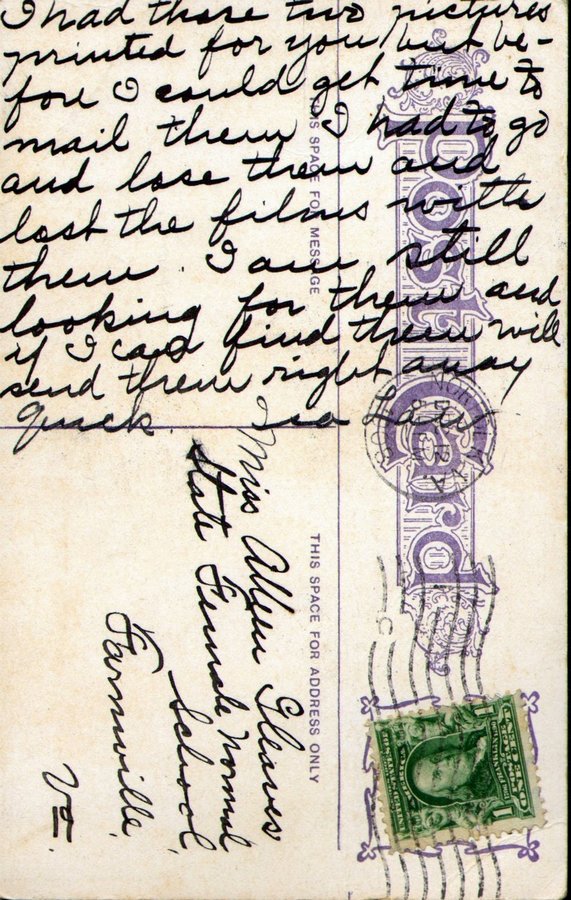 I had those two pictures
printed for you but be-
fore I could get time to
mail them I had to go
and lose them and
lost the films with
them. I am still
looking for them and
if I can find them will
send them right away
quack. Ira Law
Post Card
THIS SPACE FOR MESSAGE
THIS SPACE FOR ADDRESS ONLY
Miss Gleaves
State Female Normal
School,
Farmville,
Va.